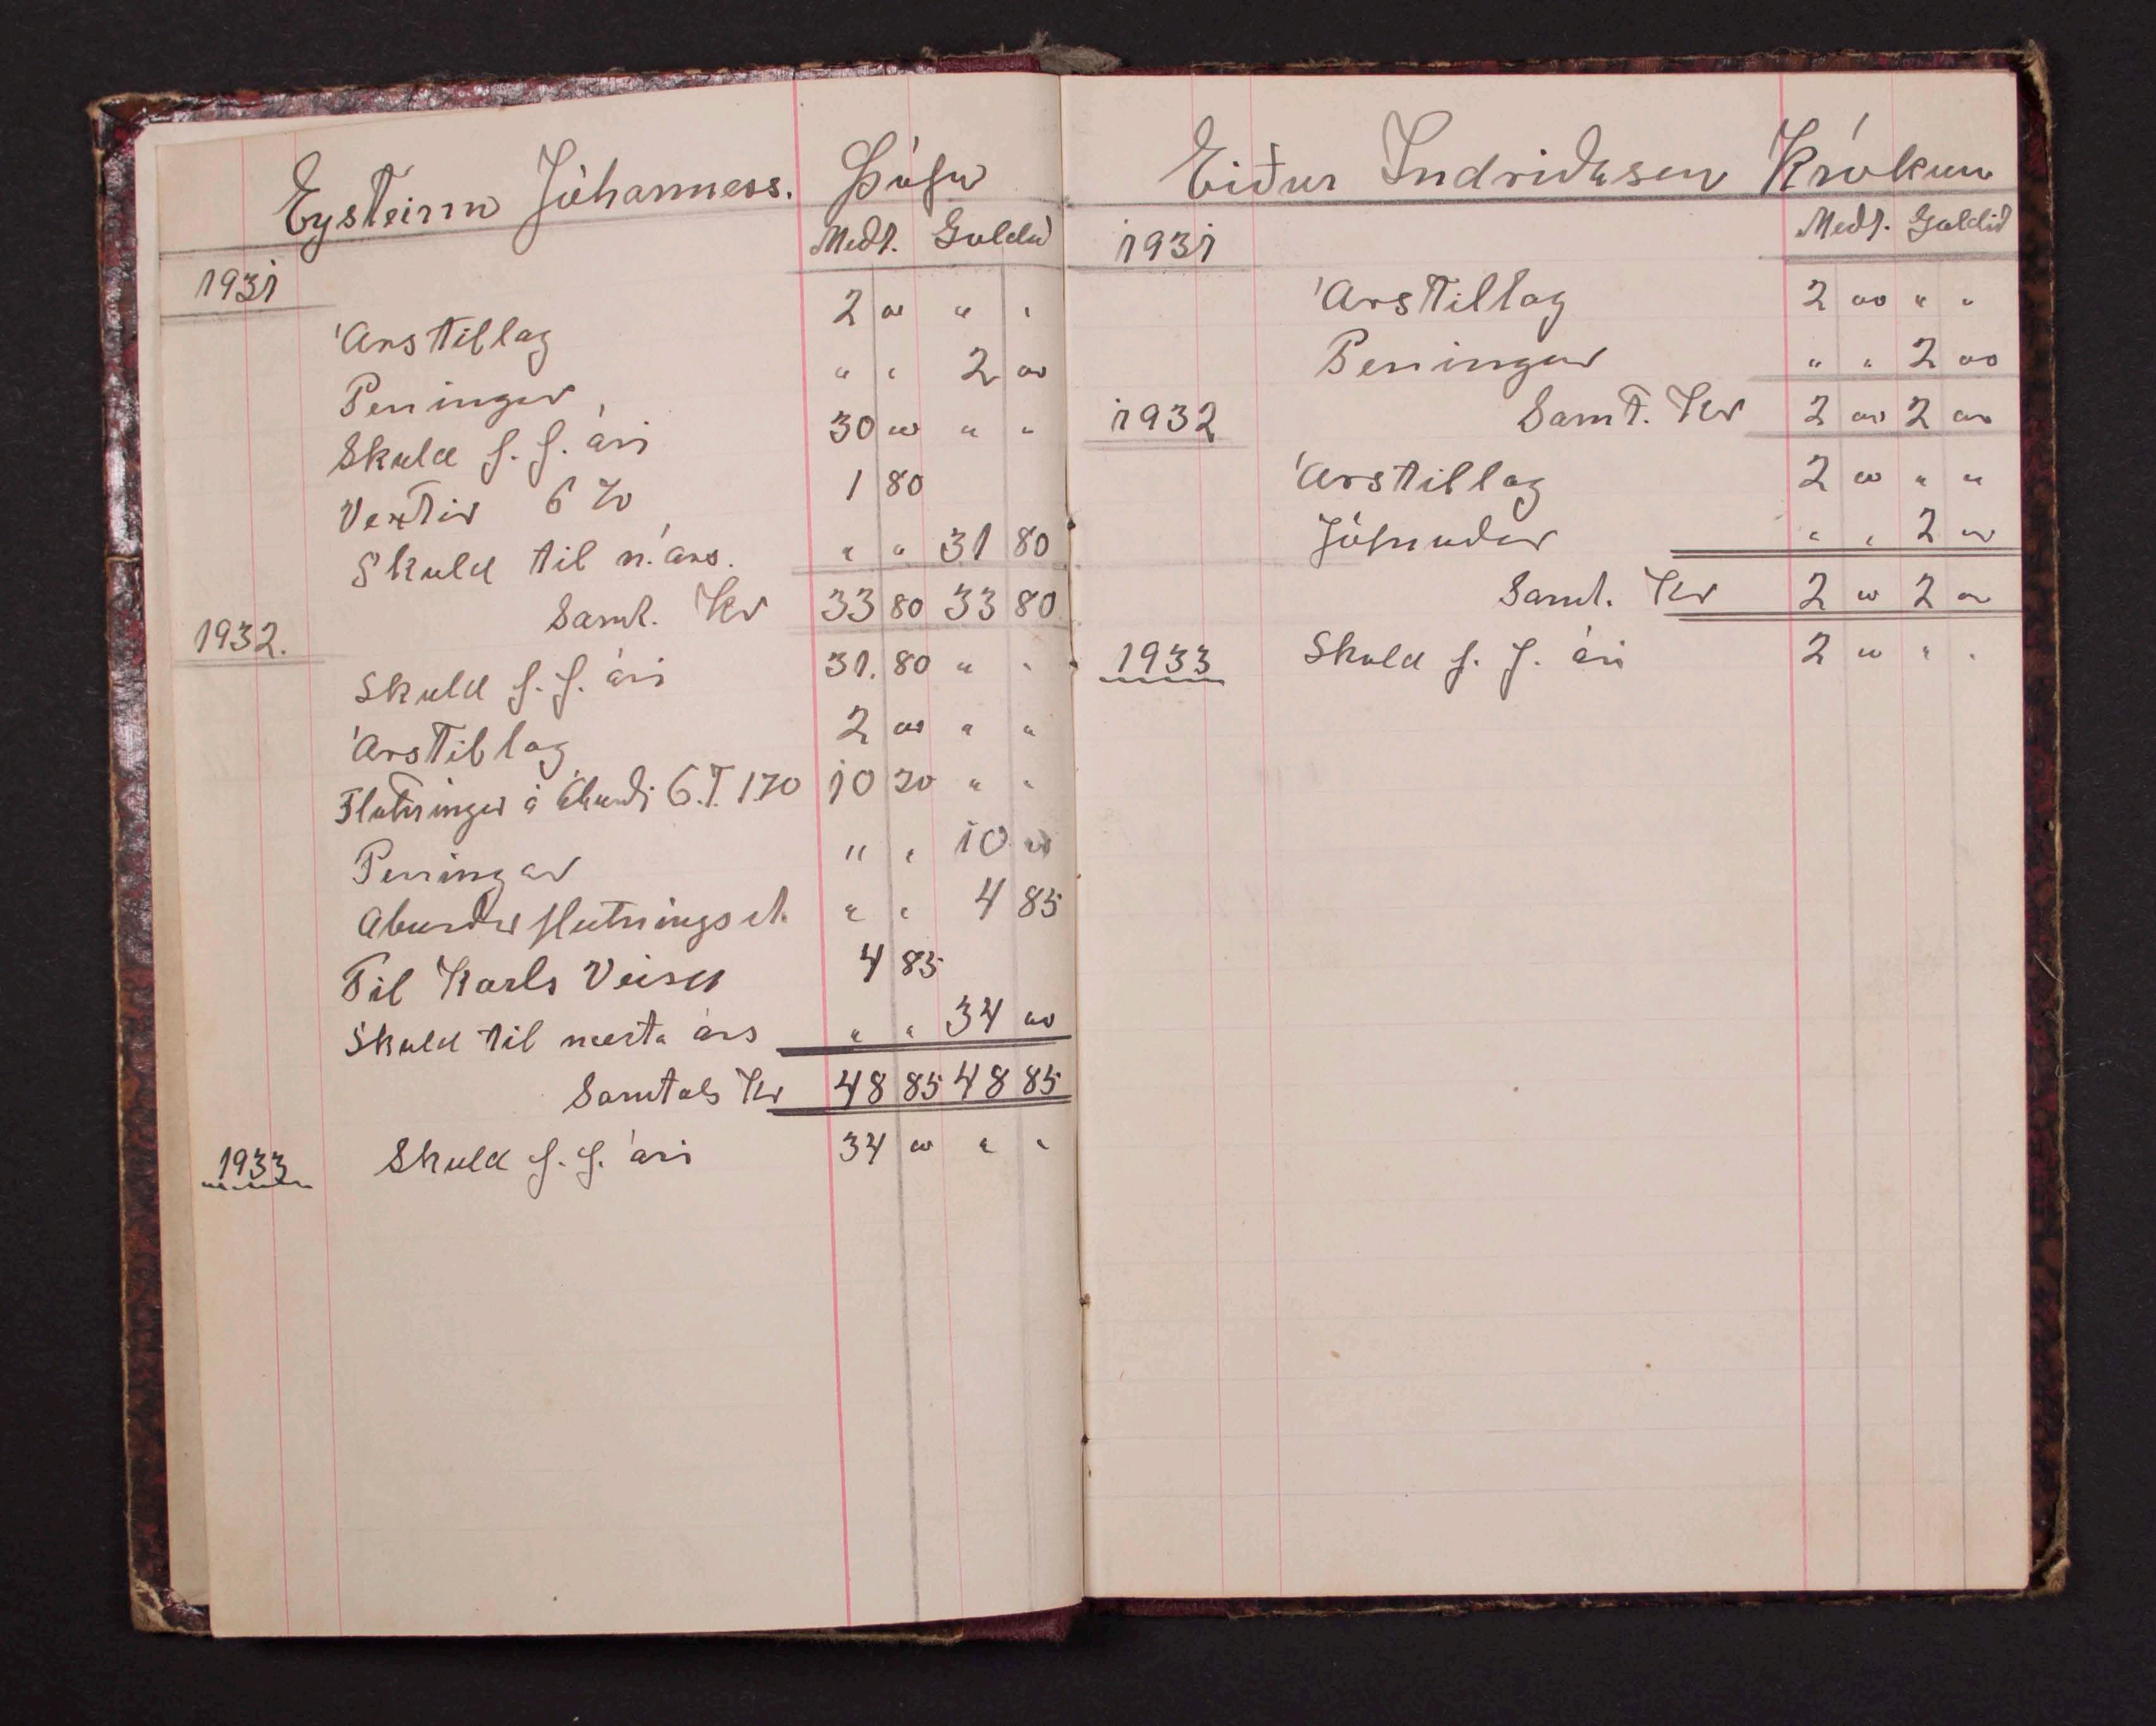 Eysteinn Jóhanness. Þúfu
Medt. Goldid
1931
Árstillag 2 00 " "
Peningar " " 2 00
Skuld f. f. ári 30 00 " "
Vextir 6 % 1 80
Skuld til n. árs. " " 31 80
Samt. Kr 33 80 33 80
1932.
Skuld f. f. ári 31. 80 " "
Árstillag 2 00 " "
Flutningur á Áburdi 6.T. 1.70 10 20 " "
Peningar " " 10 00
Áburdar flutnings st. " " 4 85
Til Karls Veisu 4 85
Skuld til næsta árs " " 34 00
Samtals Kr 48 85 48 85
1933 Skuld f. f. ári 34 00 " "
Eiður Indridason Krókum
Medt. Goldid
1931
Árstillag 2 00 " "
Peningar " " 2 00
Samt. Kr 2 00 2 00
1932
Árstillag 2 00 " "
Jöfnudur " " 2 00
Samt. Kr 2 00 2 00
1933 Skuld f. f. ári 2 00 " "